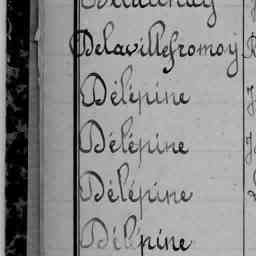 Delavillefromoy
Délépine
Délépine
Délépine
Délépine